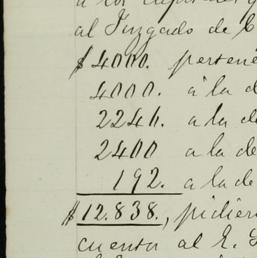 a los
al Juzgado de C
$4000. pertene
4000. á la d
2246. a la d
2400 a la de
192. a la de
$12.838., pidier
cuenta al E.